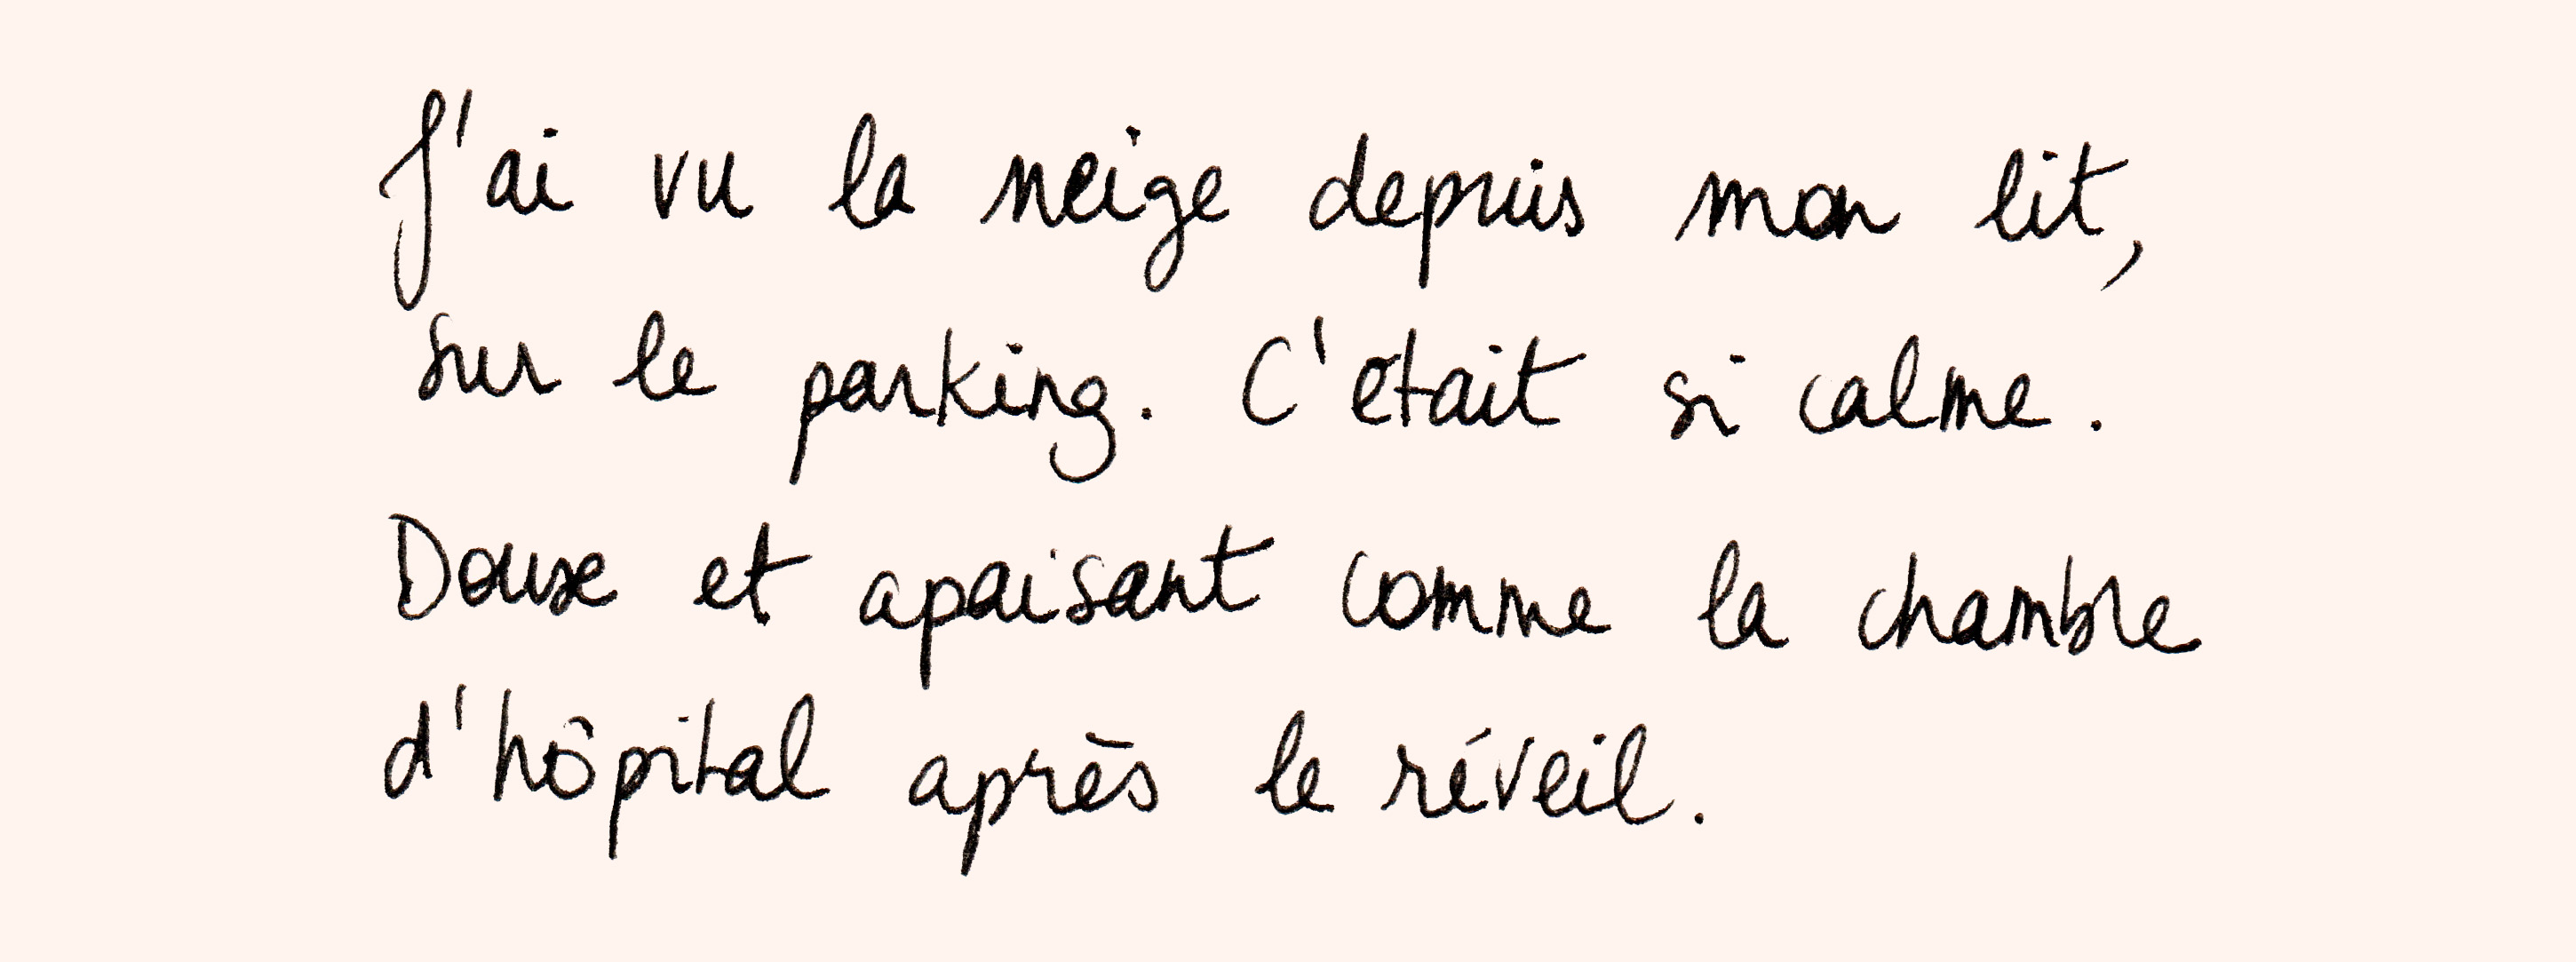 J'ai vu la neige depuis mon lit,
sur le parking. C'était si calme.
Doux et apaisant comme la chambre
d'hôpital après le réveil.